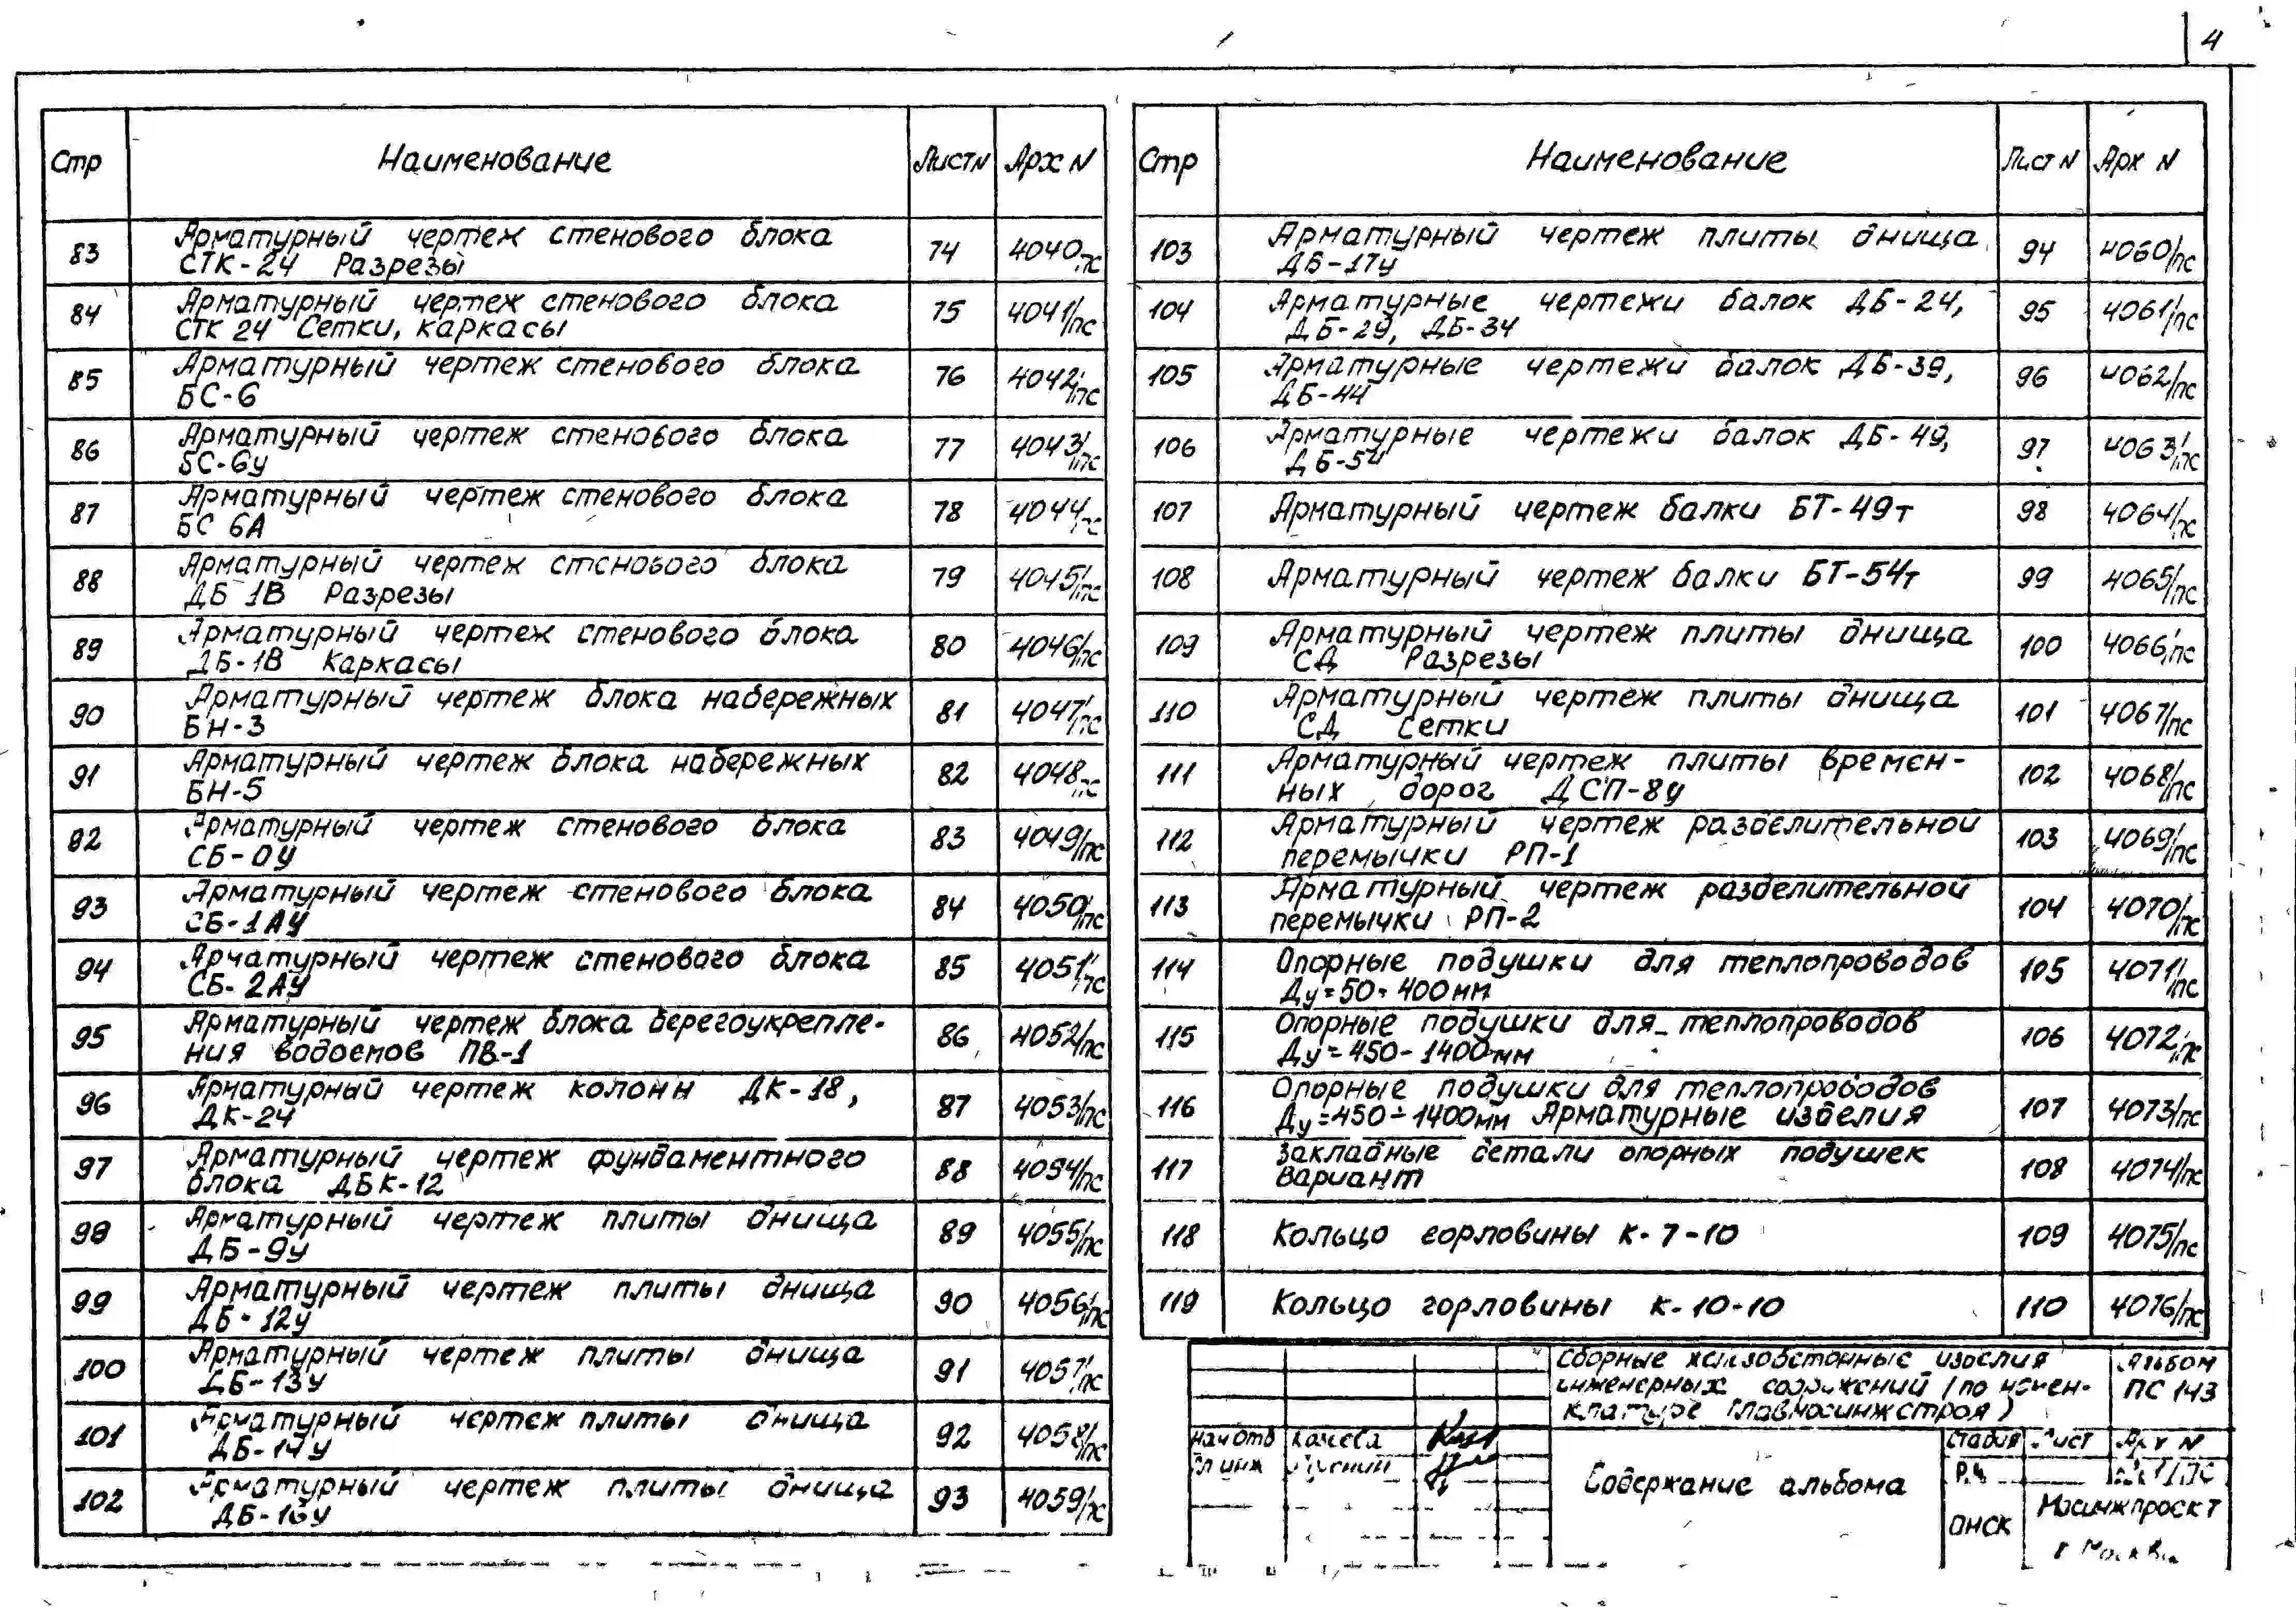 4
Стр Наименование Лист N Арх N
83 Арматурный чертеж стенового блока 74 4040/пс
СТК-24 Разрезы
84 Арматурный чертеж стенового блока 75 4041/пс
СТК 24 Сетки, каркасы
85 Арматурный чертеж стенового блока 76 4042/пс
БС-6
86 Арматурный чертеж стенового блока 77 4043/пс
БС-6у
87 Арматурный чертеж стенового блока 78 4044/пс
БС 6А
88 Арматурный чертеж стенового блока 79 4045/пс
ДБ-1В Разрезы
89 Арматурный чертеж стенового блока 80 4046/пс
ДБ-1В Каркасы
90 Арматурный чертеж блока набережных 81 4047/пс
БН-3
91 Арматурный чертеж блока набережных 82 4048/пс
БН-5
92 Арматурный чертеж стенового блока 83 4049/пс
СБ-0У
93 Арматурный чертеж стенового блока 84 4050/пс
СБ-1АУ
94 Арматурный чертеж стенового блока 85 4051/пс
СБ-2АУ
95 Арматурный чертеж блока берегоукрепле- 86 4052/пс
ния водоемов ПВ-1
96 Арматурный чертеж колонн ДК-18, 87 4053/пс
ДК-24
97 Арматурный чертеж фундаментного 88 4054/пс
блока ДБК-12
98 Арматурный чертеж плиты днища 89 4055/пс
ДБ-9у
99 Арматурный чертеж плиты днища 90 4056/пс
ДБ-12у
100 Арматурный чертеж плиты днища 91 4057/пс
ДБ-13у
101 Арматурный чертеж плиты днища 92 4058/пс
ДБ-14у
102 Арматурный чертеж плиты днища 93 4059/пс
ДБ-16у
Стр Наименование Лист N Арх N
103 Арматурный чертеж плиты днища 94 4060/пс
ДБ-17у
104 Арматурные чертежи балок ДБ-24, 95 4061/пс
ДБ-29, ДБ-34
105 Арматурные чертежи балок ДБ-39, 96 4062/пс
ДБ-44
106 Арматурные чертежи балок ДБ-49, 97 4063/пс
ДБ-54
107 Арматурный чертеж балки БТ-49т 98 4064/пс
108 Арматурный чертеж балки БТ-54т 99 4065/пс
109 Арматурный чертеж плиты днища 100 4066/пс
СД Разрезы
110 Арматурный чертеж плиты днища 101 4067/пс
СД Сетки
111 Арматурный чертеж плиты времен- 102 4068/пс
ных дорог ДСП-8у
112 Арматурный чертеж разделительной 103 4069/пс
перемычки РП-1
113 Арматурный чертеж разделительной 104 4070/пс
перемычки РП-2
114 Опорные подушки для теплопроводов 105 4071/пс
Ду=50÷400мм
115 Опорные подушки для теплопроводов 106 4072/пс
Ду=450-1400мм
116 Опорные подушки для теплопроводов 107 4073/пс
Ду=450÷1400мм Арматурные изделия
117 Закладные детали опорных подушек 108 4074/пс
Вариант
118 Кольцо горловины К-7-10 109 4075/пс
119 Кольцо горловины К-10-10 110 4076/пс
Сборные железобетонные изделия
инженерных сооружений (по номен-
клатуре Главмосинжстроя)
Альбом
ПС 143
Нач отд
Гл инж
Содержание альбома
Стадия Лист Арх N
Р.Ч.
ОНСК
Мосинжпроект
г Москва